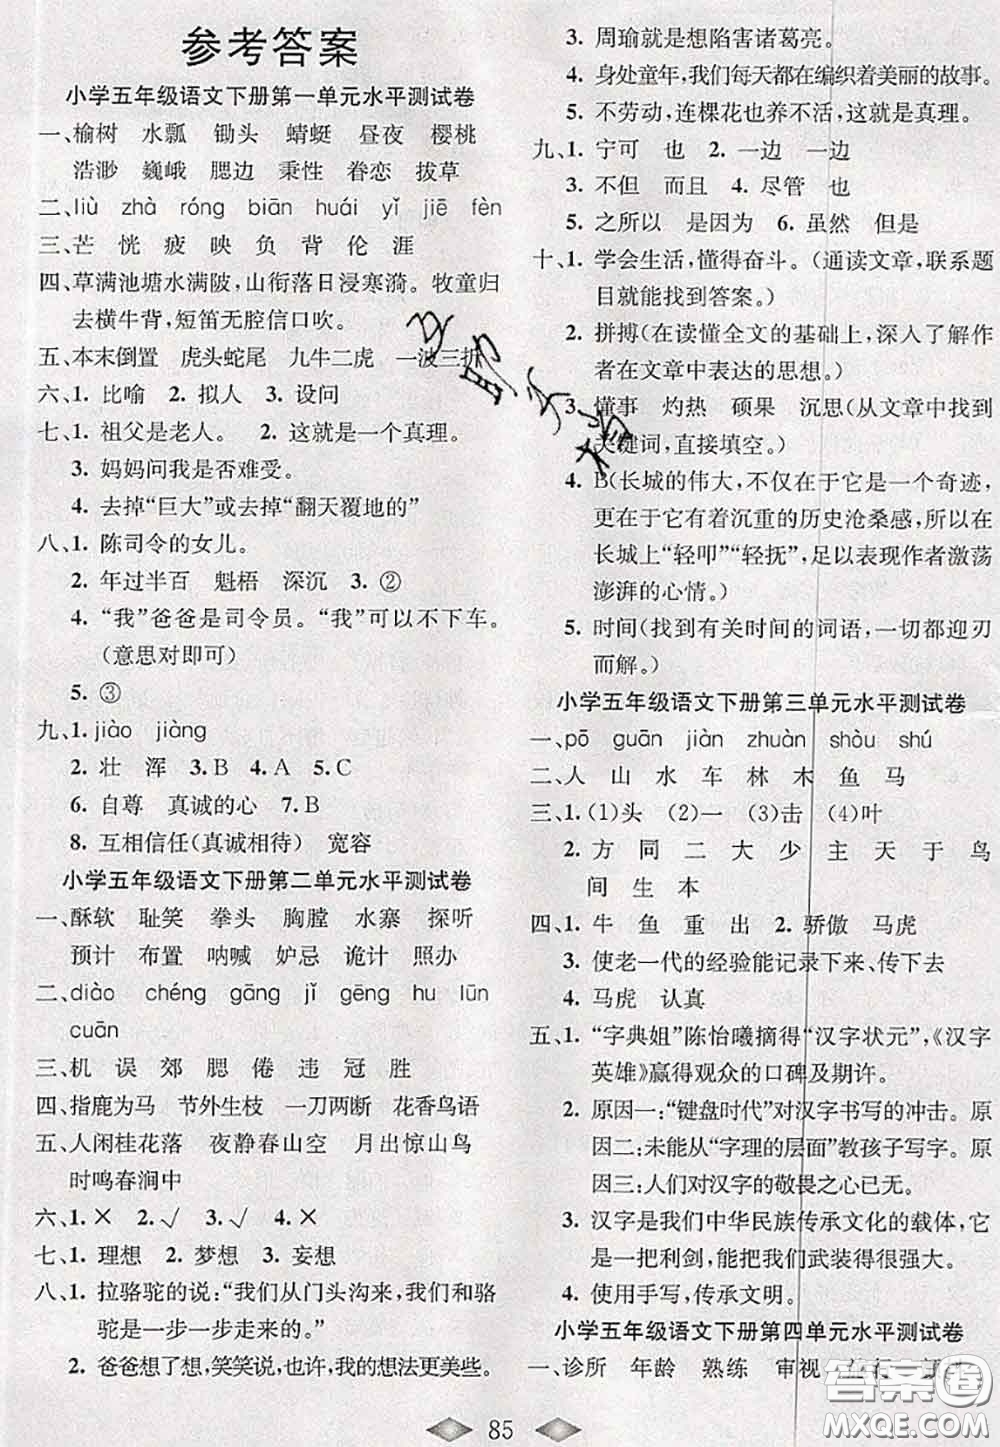 参考答案
小学五年级语文下册第一单元水平测试卷
一、榆树 水瓢 锄头 蜻蜓 昼夜 樱桃
浩渺 巍峨 腮边 秉性 眷恋 拔草
二、liù zhà róng biān huái yǐ jiē fèn
三、芒 恍 疲 映 负 背 伦 涯
四、草满池塘水满陂，山衔落日浸寒漪。牧童归
去横牛背，短笛无腔信口吹。
五、本末倒置 虎头蛇尾 九牛二虎 一波三折
六、1. 比喻 2. 拟人 3. 设问
七、1. 祖父是老人。 2. 这就是一个真理。
3. 妈妈问我是否难受。
4. 去掉“巨大”或去掉“翻天覆地的”
八、1. 陈司令的女儿。
2. 年过半百 魁梧 深沉 3. ②
4. “我”爸爸是司令员。“我”可以不下车。
（意思对即可）
5. ③
九、1. jiào jiàng
2. 壮 浑 3. B 4. A 5. C
6. 自尊 真诚的心 7. B
8. 互相信任(真诚相待) 宽容
小学五年级语文下册第二单元水平测试卷
一、酥软 耻笑 拳头 胸膛 水寨 探听
预计 布置 呐喊 妒忌 诡计 照办
二、diào chéng gāng jǐ gēng hu lūn
cuān
三、机 误 郊 腮 倦 违 冠 胜
四、指鹿为马 节外生枝 一刀两断 花香鸟语
五、人闲桂花落 夜静春山空 月出惊山鸟
时鸣春涧中
六、1. × 2. √ 3. √ 4. ×
七、1. 理想 2. 梦想 3. 妄想
八、1. 拉骆驼的说：“我们从门头沟来，我们和骆
驼是一步一步走来的。”
2. 爸爸想了想，笑笑说，也许，我的想法更美些。
3. 周瑜就是想陷害诸葛亮。
4. 身处童年，我们每天都在编织着美丽的故事。
5. 不劳动，连棵花也养不活，这就是真理。
九、1. 宁可 也 2. 一边 一边
3. 不但 而且 4. 尽管 也
5. 之所以 是因为 6. 虽然 但是
十、1. 学会生活，懂得奋斗。（通读文章，联系题
目就能找到答案。）
2. 拼搏（在读懂全文的基础上，深入了解作
者在文章中表达的思想。）
3. 懂事 灼热 硕果 沉思（从文章中找到
关键词，直接填空。）
4. B（长城的伟大，不仅在于它是一个奇迹，
更在于它有着沉重的历史沧桑感，所以在
长城上“轻叩”“轻抚”，足以表现作者激荡
澎湃的心情。）
5. 时间（找到有关时间的词语，一切都迎刃
而解。）
小学五年级语文下册第三单元水平测试卷
一、pō guān jiàn zhuàn shòu shú
二、人 山 水 车 林 木 鱼 马
三、1. (1)头 (2)一 (3)击 (4)叶
2. 方 同 二 大 少 主 天 于 鸟
间 生 本
四、1. 牛 鱼 重 出 2. 骄傲 马虎
3. 使老一代的经验能记录下来、传下去
4. 马虎 认真
五、1. “字典姐”陈怡曦摘得“汉字状元”，《汉字
英雄》赢得观众的口碑及期许。
2. 原因一：“键盘时代”对汉字书写的冲击。原
因二：未能从“字理的层面”教孩子写字。原
因三：人们对汉字的敬畏之心已无。
3. 汉字是我们中华民族传承文化的载体，它
是一把利剑，能把我们武装得很强大。
4. 使用手写，传承文明。
小学五年级语文下册第四单元水平测试卷
一、诊所 年龄 熟练 审视
答案圈
MXQE.COM
85